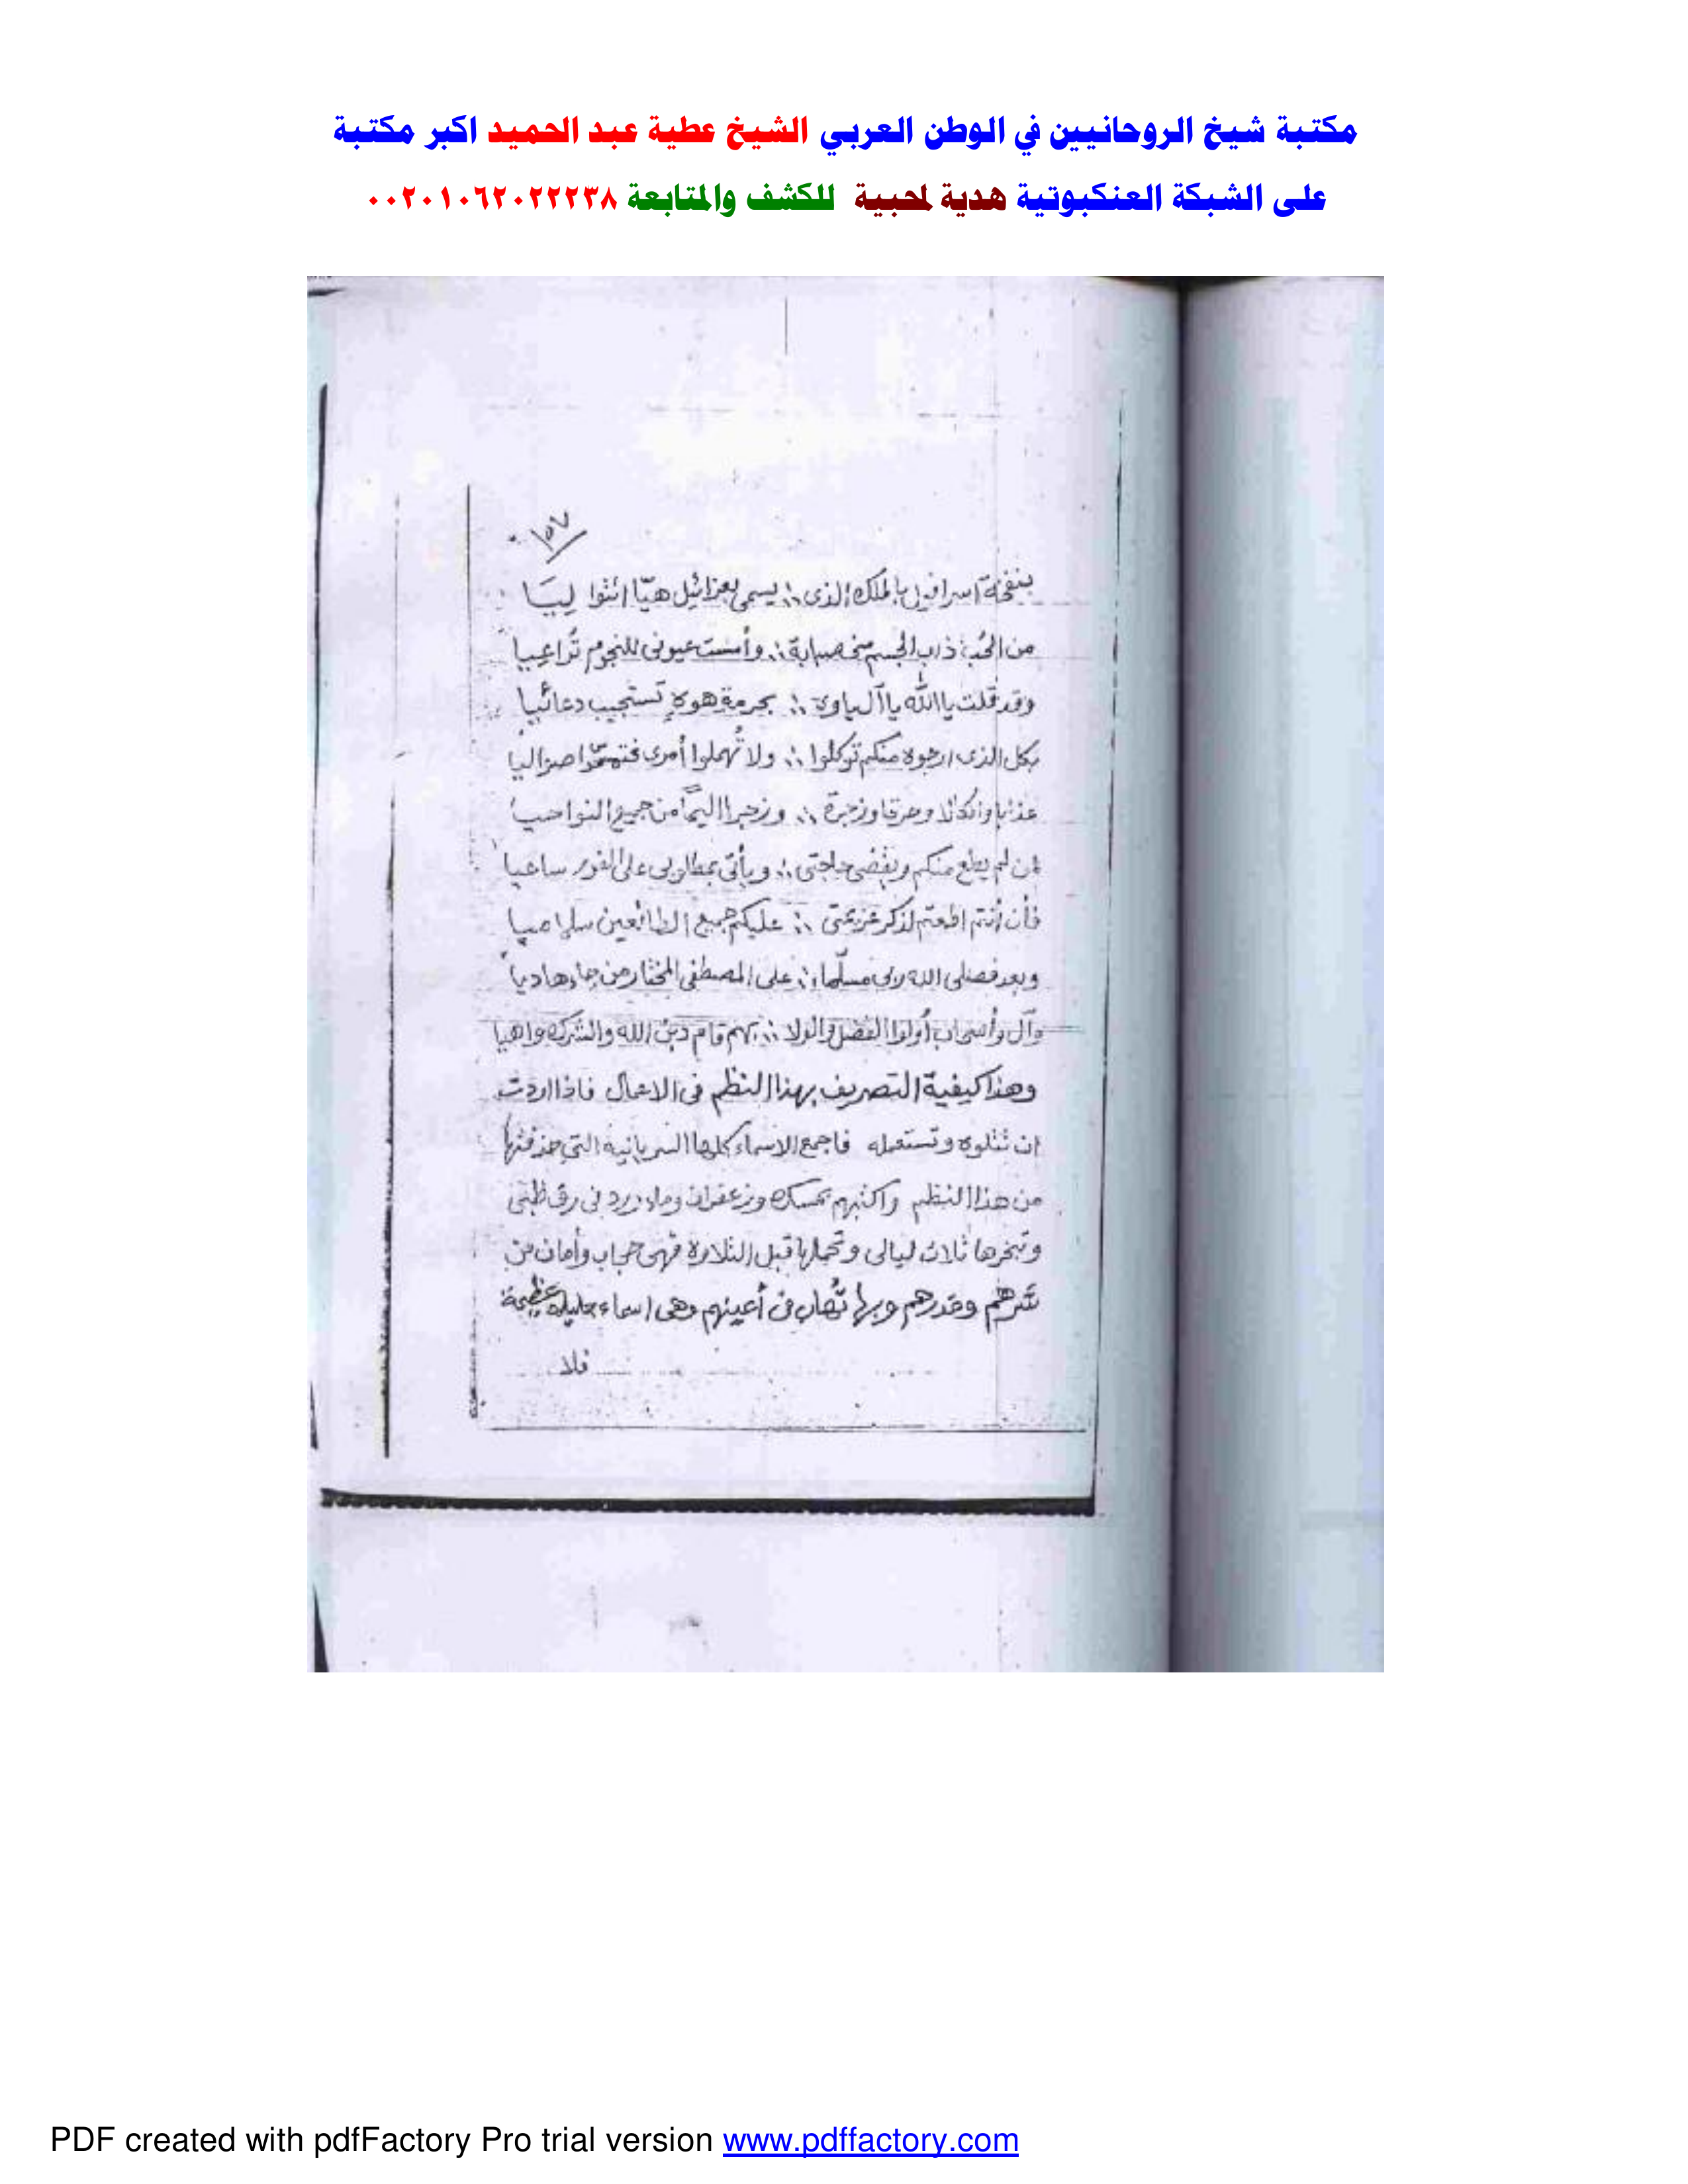 مكتبة شيخ الروحانيين في الوطن العربي الشيخ عطية عبد الحميد اكبر مكتبة
على الشبكة العنكبوتية هدية لمحبية للكشف والمتابعة ٠٠٢٠١٠٦٢٠٢٢٢٣٨
١٥٧
بنفخة اسرافيل بالملك الذى ∴ يسمى بعزرائيل هيّا ائتوا ليَا
من الحُب ذاب الجسم صبابة ∴ وأمست عيونى للنجوم تُراعيا
وقد قلت يا الله يا آل ياوه ∴ بحرمة هوه تستجيب دعائيا
بكل الذى ارجوه منكم توكلوا ∴ ولا تُهملوا أمرى
وحرقا وزجرة ∴ وزجرا اليمًا من جميع النواحيا
لم يطع منكم ويقضى حاجتى ∴ ويأتى بمطلوبى على الفور ساعيا
فأن أنتم اطعتم لذكر عزيمتى ∴ عليكم جميع الطائعين سلاميا
وبعد فصلى الله ربى مسلّما ∴ على المصطفى المختار من جاء هاديا
وآل وأصحاب أولوا الفضل والولا ∴ بهم قام دين الله والشرك واهيا
وهذا كيفية التصريف بهذا النظم فى الاعمال فاذا اردت
ان تتلوه وتستعمله فاجمع الاسماء كلها السريانية التى
من هذا النظم واكتبهم بمسك وزعفران وماء ورد فى رق ظبى
وتبخرها ثلاث ليالى وتحملها قبل التلاوة فهى حجاب وأمان من
شرهم وغدرهم وبها تُهاب فى أعينهم وهى اسماء جليله عظيمة
فلا
PDF created with pdfFactory Pro trial version www.pdffactory.com